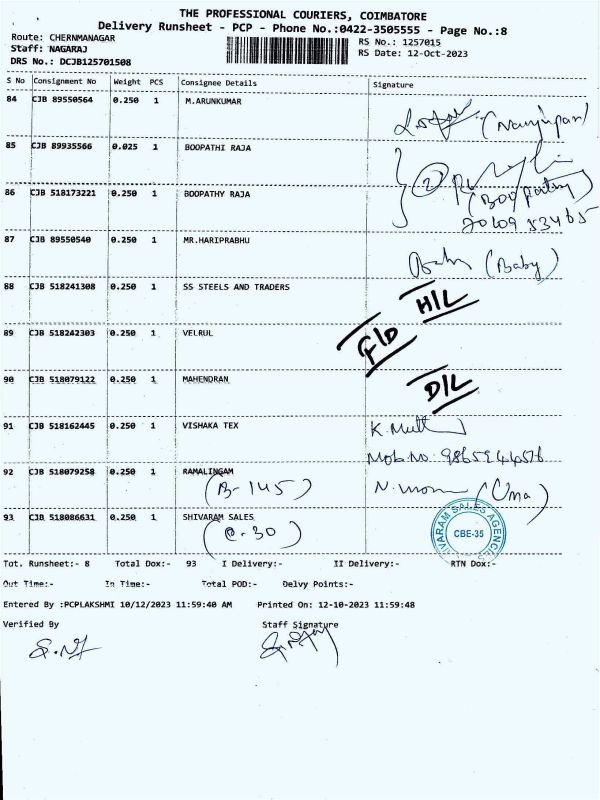 THE PROFESSIONAL COURIERS, COIMBATORE
Delivery Runsheet - PCP - Phone No.:0422-3505555 - Page No.:8
Route: CHERNMANAGAR
RS No.: 1257015
Staff: NAGARAJ
RS Date: 12-Oct-2023
DRS No.: DCJB125701508
S No Consignment No Weight PCS Consignee Details Signature
84 CJB 89550564 0.250 1 M.ARUNKUMAR
85 CJB 89935566 0.025 1 BOOPATHI RAJA
(2)
86 CJB 518173221 0.250 1 BOOPATHY RAJA
87 CJB 89550540 0.250 1 MR.HARIPRABHU
(Baby)
88 CJB 518241308 0.250 1 SS STEELS AND TRADERS
H/L
89 CJB 518242303 0.250 1 VELRUL
F/D
90 CJB 518079122 0.250 1 MAHENDRAN
D/L
91 CJB 518162445 0.250 1 VISHAKA TEX
K. Mutt
Mob No.
92 CJB 518079258 0.250 1 RAMALINGAM
(B-145)
(Uma)
93 CJB 518086631 0.250 1 SHIVARAM SALES
(@-30)
VARAM SALES AGENCIES
CBE-35
Tot. Runsheet:- 8 Total Dox:- 93 I Delivery:- II Delivery:- RTN Dox:-
Out Time:- In Time:- Total POD:- Delvy Points:-
Entered By :PCPLAKSHMI 10/12/2023 11:59:40 AM Printed On: 12-10-2023 11:59:48
Verified By Staff Signature